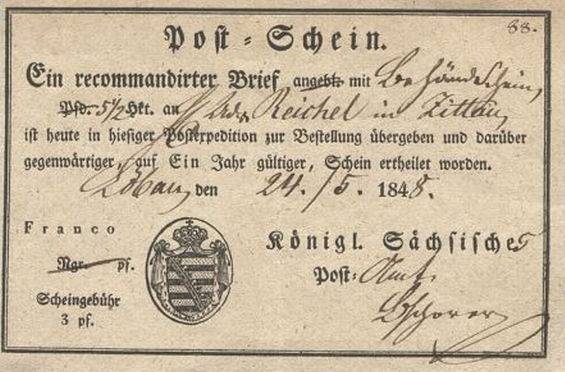 88.
Post-Schein.
Ein recommandirter Brief angebl. mit Behändeschein,
Pfd. 5 1/2 Lkt. an Adv. Reichel in Zittau,
ist heute in hiesiger Postexpedition zur Bestellung übergeben und darüber
gegenwärtiger, auf Ein Jahr gültiger, Schein ertheilet worden.
Löbau, den 24. /5. 1848.
Franco
Ngr. pf.
Scheingebühr
3 pf.
Königl. Sächsisches
Post-Amt.